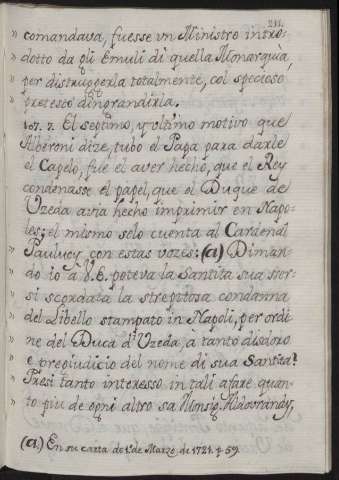 211.
» comandava, fuesse vn Ministro intro-
» dotto da gli Emuli di quella Monarquia
» per distruggerla totalmente, col specioso
» pretesto dingrandirla.
167. 7. El septimo, y vltimo motivo que
Alberoni dize, tubo el Papa para darle
el Capelo, fue el aver hecho, que el Rey
condenasse el papel, que el Duque de
Vzeda avia hecho imprimir en Napo-
les; el mismo selo cuenta al Cardenal
» Pauluoy con estas vozes: (a) Diman-
» do io a V.E. poteva la Santita sua sver-
» si scordata la strepitosa condanna
» del Libello stampato in Napoli, per ordi
» ne del Duca d'Vzeda, a tanto disdoro
» e pregiudicio del nome di sua Santita?
» Presi tanto interesso in tali afare quan-
» to piu de ogni altro sa Monsig. Aldovrandy,
(a.) En su carta de 1º de Marzo de 1721. p 59.